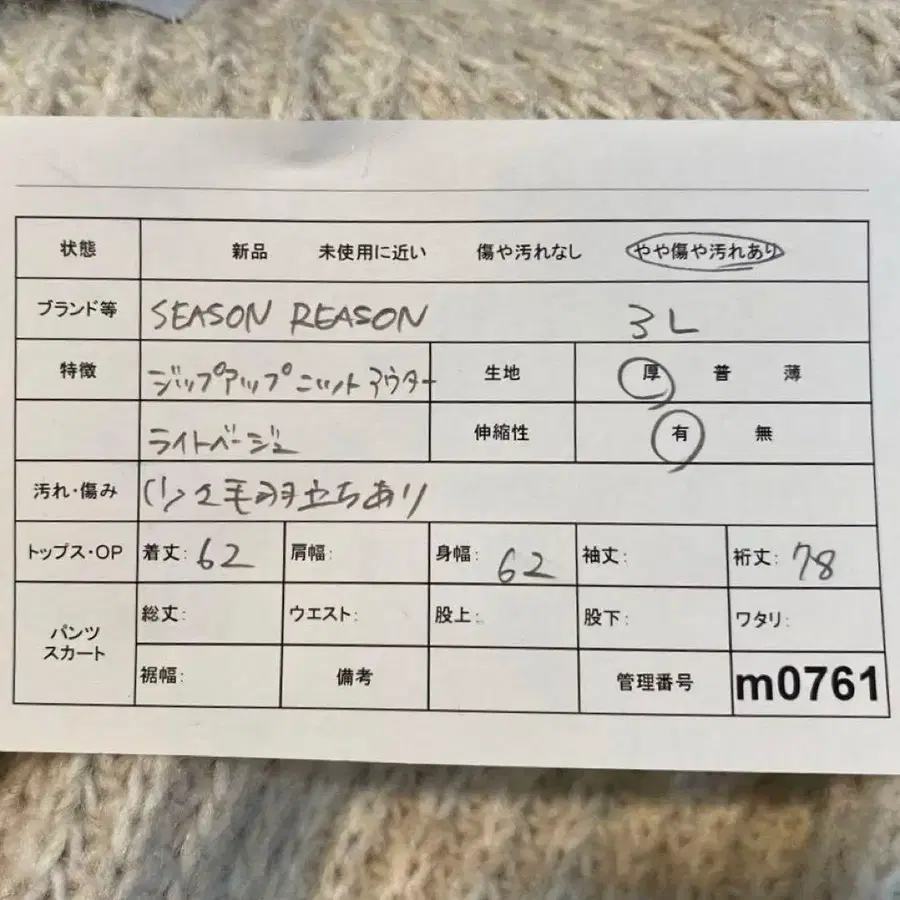 状態 新品 未使用に近い 傷や汚れなし やや傷や汚れあり
ブランド等 SEASON REASON 3L
特徴 ジップアップニットアウター 生地 厚 普 薄
ライトベージュ 伸縮性 有 無
汚れ・傷み 毛羽立ちあり
トップス・OP 着丈: 62 肩幅: 身幅: 62 袖丈: 裄丈: 78
パンツ スカート 総丈: ウエスト: 股上: 股下: ワタリ:
裾幅: 備考 管理番号 m0761